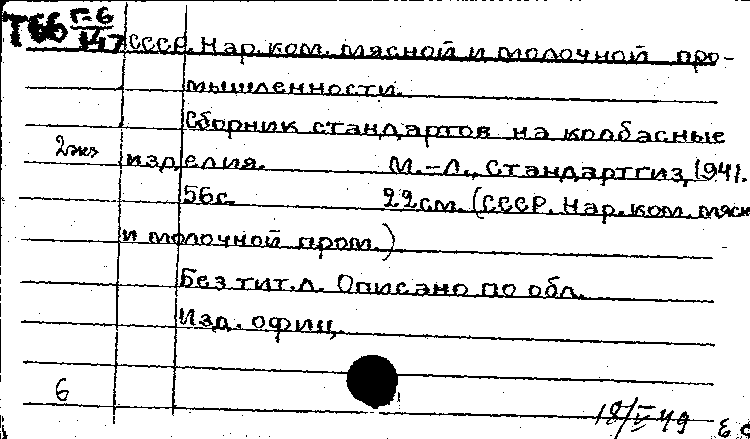 Т66 Г-6
147
СССР. Нар. ком. мясной и молочной про-
мышленности.
Сборник стандартов на колбасные
2экз изделия. М.-Л., Стандартгиз, 1941.
56с. 22см. (СССР. Нар. ком. мясн
и молочной пром.)
Без тит. л. Описано по обл.
Изд. офиц.
6
18/V 49